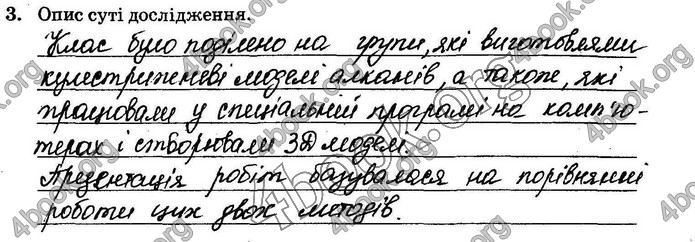 3. Опис суті дослідження.
Клас було поділено на групи, які виготовляли
кулестрижневі моделі алканів, а також, які
працювали у спеціальній програмі на комп'ю-
терах і створювали 3Д моделі.
Презентація робіт базувалася на порівнянні
роботи цих двох методів.
4book.org